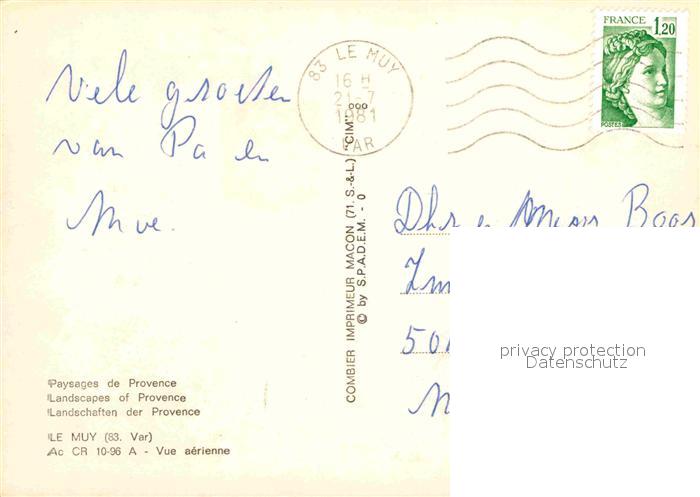 Vele groeten
van Pa en
Moe.
83 LE MUY
16 H
21-7
1981
VAR
FRANCE
1,20
POSTES
COMBIER IMPRIMEUR MACON (71. S.-&-L.) "CIM"
© by S.P.A.D.E.M. - 0
Dhr en Boos
501
privacy protection
Datenschutz
Paysages de Provence
Landscapes of Provence
Landschaften der Provence
LE MUY (83. Var)
Ac CR 10-96 A - Vue aérienne